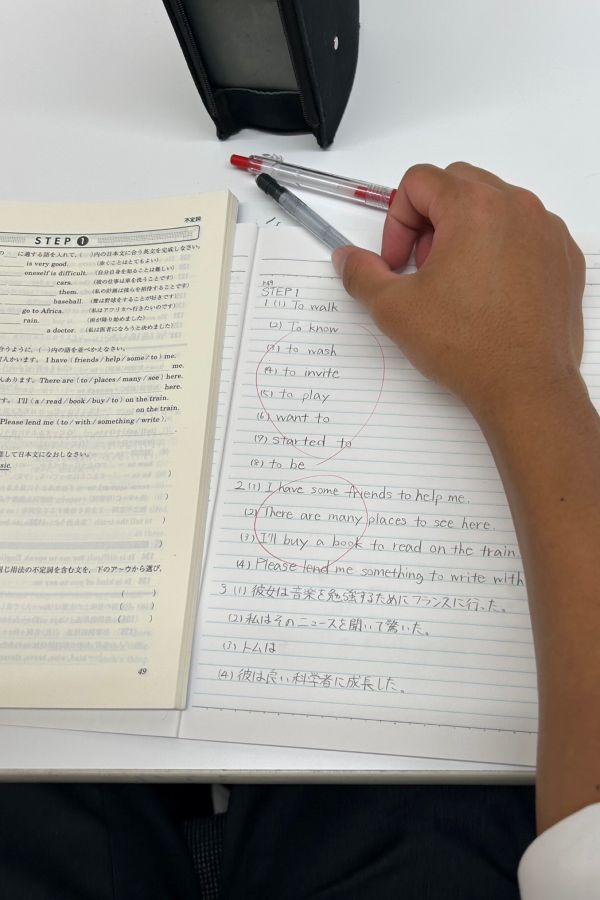 不定詞
STEP 1
に適する語を入れて,( )内の日本文に合う英文を完成しなさい。
is very good. (歩くことはとてもよい)
oneself is difficult. (自分自身を知ることは難しい)
cars. (彼の仕事は車を洗うことです)
them. (私の計画は彼らを招待することです)
baseball. (健は野球をすることが好きです)
go to Africa. (私はアフリカへ行きたいのです)
rain. (雨が降り始めました)
a doctor. (私は医者になろうと決めました)
合うように,( )内の語を並べかえなさい。
がいます。 I have (friends / help / some / to) me.
me.
があります。 There are (to / places / many / see) here.
here.
す。 I'll (a / read / book / buy / to) on the train.
on the train.
Please lend me (to / with / something / write).
して日本文になおしなさい。
sic.
同じ用法の不定詞を含む文を,下のア〜ウから選び,
49
P.49
STEP 1
1 (1) To walk
(2) To know
(3) to wash
(4) to invite
(5) to play
(6) want to
(7) started to
(8) to be
2 (1) I have some friends to help me.
(2) There are many places to see here.
(3) I'll buy a book to read on the train.
(4) Please lend me something to write with
3 (1) 彼女は音楽を勉強するためにフランスに行った。
(2) 私はそのニュースを聞いて驚いた。
(3) トムは
(4) 彼は良い科学者に成長した。